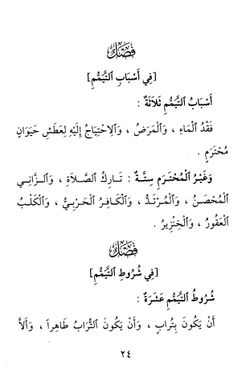 فَصْلٌ
[فِي أَسْبَابِ ٱلتَّيَمُّمِ]
أَسْبَابُ ٱلتَّيَمُّمِ ثَلَاثَةٌ :
فَقْدُ ٱلْمَاءِ ، وَٱلْمَرَضُ ، وَٱلِاحْتِيَاجُ إِلَيْهِ لِعَطَشِ حَيَوَانٍ
مُحْتَرَمٍ .
وَغَيْرُ ٱلْمُحْتَرَمِ سِتَّةٌ : تَارِكُ ٱلصَّلَاةِ ، وَٱلزَّانِي
ٱلْمُحْصَنُ ، وَٱلْمُرْتَدُّ ، وَٱلْكَافِرُ ٱلْحَرْبِيُّ ، وَٱلْكَلْبُ
ٱلْعَقُورُ ، وَٱلْخِنْزِيرُ .
فَصْلٌ
[فِي شُرُوطِ ٱلتَّيَمُّمِ]
شُرُوطُ ٱلتَّيَمُّمِ عَشَرَةٌ :
أَنْ يَكُونَ بِتُرَابٍ ، وَأَنْ يَكُونَ ٱلتُّرَابُ طَاهِراً ، وَأَلَّا
٢٤